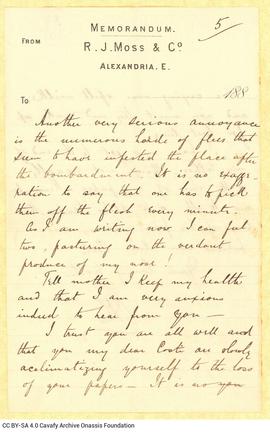 MEMORANDUM.
5
FROM
R. J. MOSS & Co
ALEXANDRIA. E.
188
TO
Another very serious annoyance
is the numerous horde of flies that
seem to have infested the place after
the bombardment. It is no exagge-
ration to say that one has to pick
them off the flesh every minute.
As I am writing now I can feel
two, pasturing on the verdant
produce of my nose!
Tell mother I keep my health
and that I am very anxious
indeed to hear from you —
I trust you are all well and
that you my dear Costi are slowly
acclimatizing yourself to the loss
of your papers — It is no
CC BY-SA 4.0 Cavafy Archive Onassis Foundation